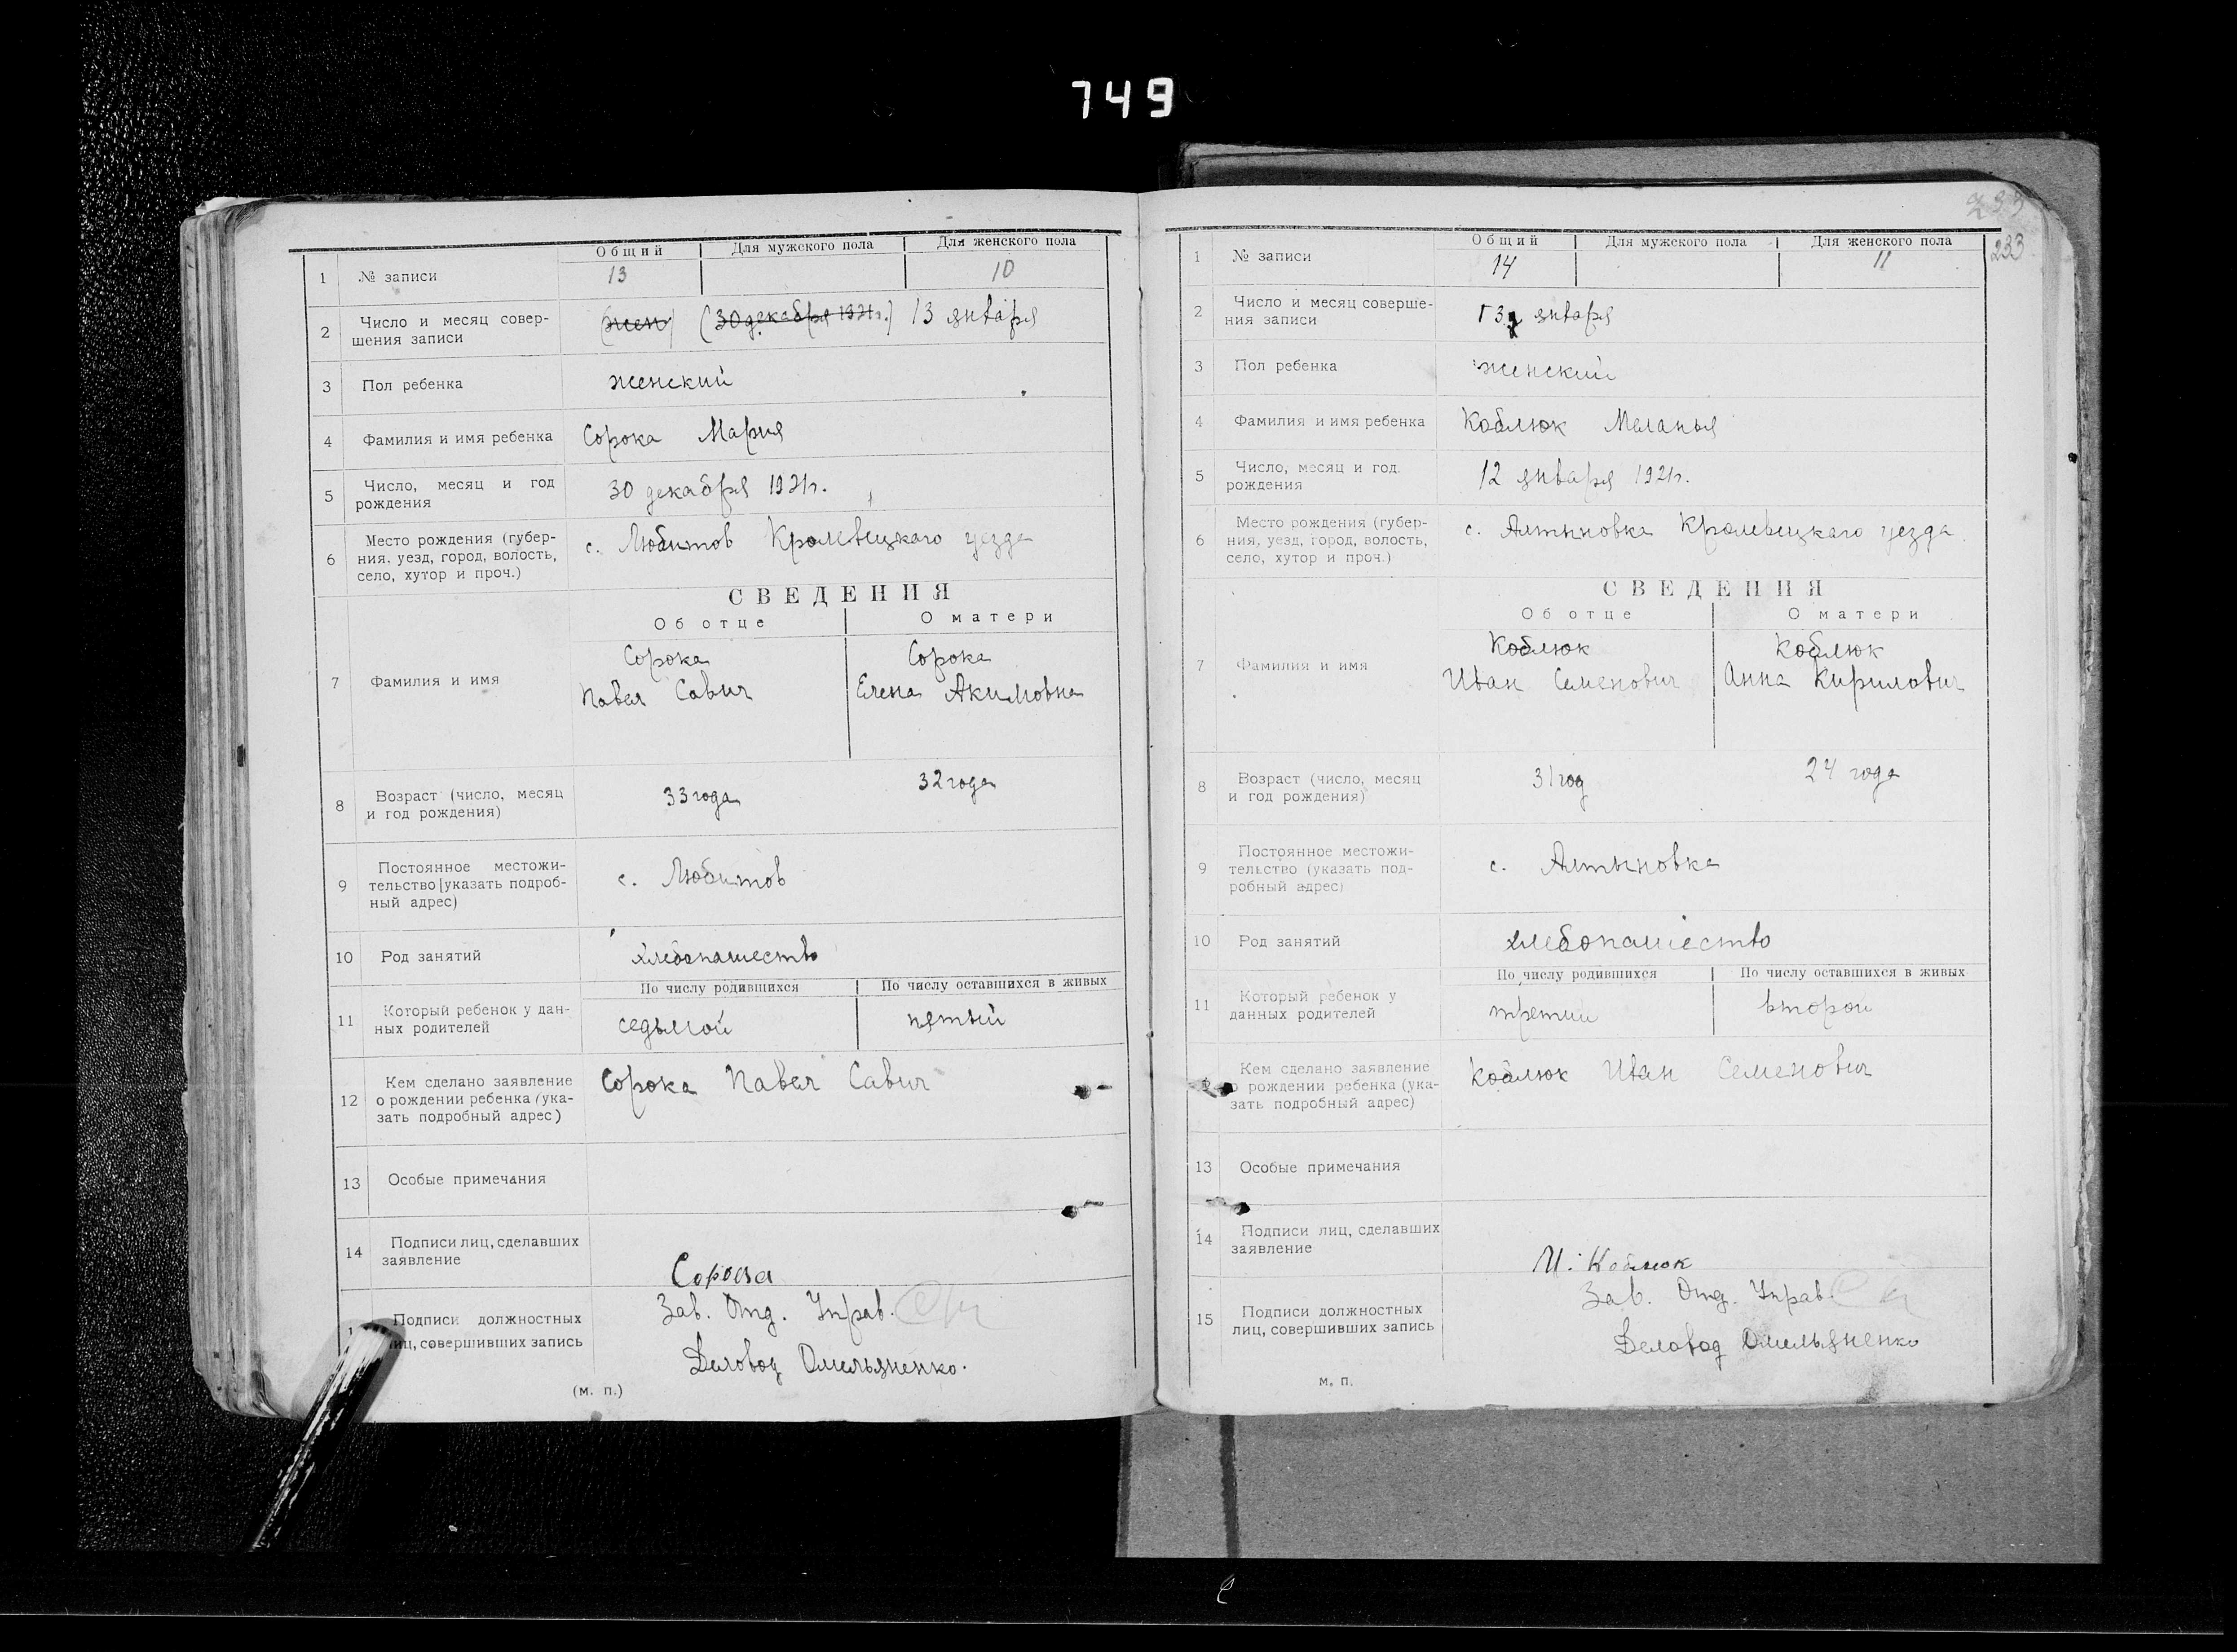 749
Общий Для мужского пола Для женского пола
1 № записи 13 10
2 Число и месяц совер-
шения записи (жен) (30 декабря 1921г.) 13 января
3 Пол ребенка женский
4 Фамилия и имя ребенка Сорока Мария
5 Число, месяц и год
рождения 30 декабря 1921г.
6 Место рождения (губер-
ния, уезд, город, волость,
село, хутор и проч.) с. Любитов Кролевецкаго уезда
СВЕДЕНИЯ
Об отце О матери
7 Фамилия и имя
Сорока Сорока
Павел Савич Елена Акимовна
8 Возраст (число, месяц
и год рождения) 33 года 32 года
9 Постоянное местожи-
тельство [указать подроб-
ный адрес) с. Любитов
10 Род занятий хлебопашество
По числу родившихся По числу оставшихся в живых
11 Который ребенок у дан-
ных родителей седьмой пятый
12 Кем сделано заявление
о рождении ребенка (ука-
зать подробный адрес) Сорока Павел Савич
13 Особые примечания
14 Подписи лиц, сделавших
заявление Сорока
1 Подписи должностных
иц, совершивших запись
Зав. Отд. Управ.
Деловод Омельяненко.
(м. п.)
233
233
Общий Для мужского пола Для женского пола
1 № записи 14 11
2 Число и месяц соверше-
ния записи 13 января
3 Пол ребенка женский
4 Фамилия и имя ребенка Коблюк Меланья
5 Число, месяц и год
рождения 12 января 1921г.
6 Место рождения (губер-
ния, уезд, город, волость,
село, хутор и проч.) с. Алтыновка Кролевецкаго уезда
СВЕДЕНИЯ
Об отце О матери
7 Фамилия и имя
Коблюк Коблюк
Иван Семенович Анна Кирилович
8 Возраст (число, месяц
и год рождения) 31 год 24 года
9 Постоянное местожи-
тельство (указать под-
робный адрес) с. Алтыновка
10 Род занятий хлебопашество
По числу родившихся По числу оставшихся в живых
11 Который ребенок у
данных родителей третий второй
Кем сделано заявление
о рождении ребенка (ука-
зать подробный адрес) Коблюк Иван Семенович
13 Особые примечания
14 Подписи лиц, сделавших
заявление И. Коблюк
15 Подписи должностных
лиц, совершивших запись
Зав. Отд. Управ.
Деловод Омельяненко
м. п.